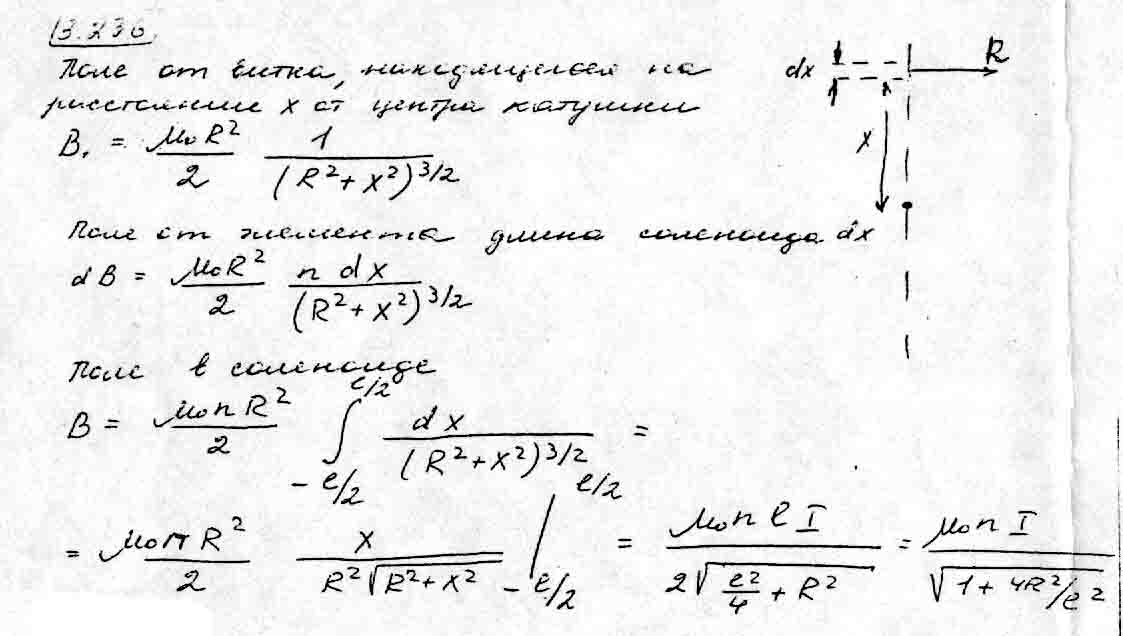 13.236.
Поле от витка, находящегося на
расстояние x от центра катушки
B₁ = μ₀R²/2 1/(R² + x²)^3/2
dx R
x
Поле от элемента длина соленоида dx
dB = μ₀R²/2 n dx/(R² + x²)^3/2
Поле в соленоиде
B = μ₀nR²/2 ∫_{-ℓ/2}^{ℓ/2} dx/(R² + x²)^3/2 =
= μ₀nR²/2 x/(R²√(R² + x²)) |_{-ℓ/2}^{ℓ/2} = μ₀nℓI/(2√(ℓ²/4 + R²)) = μ₀nI/√(1 + 4R²/ℓ²)